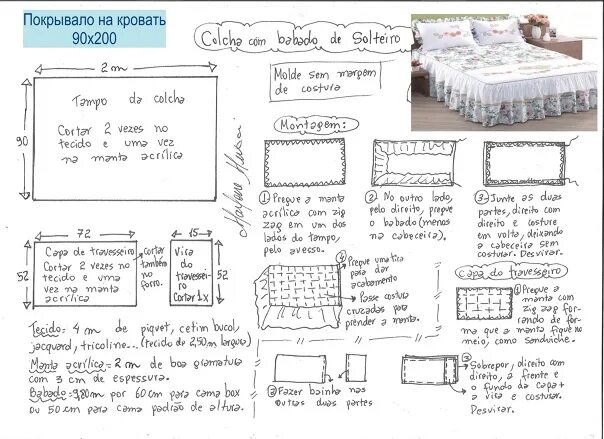 Покрывало на кровать
90x200
Colcha com babado de Solteiro
Molde sem margem
de costura
2m
90
Tampo da colcha
Cortar 2 vezes no
tecido e uma vez
na manta acrílica
Montagem:
① Pregue a manta
acrílica com zig
zag em um dos
lados do tampo,
pelo avesso.
② No outro lado,
pelo direito, pregue
o babado (menos
na cabeceira).
③ Junte as duas
partes, direito com
direito e costure
em volta, deixando
a cabeceira sem
costurar. Desvirar.
72
52
Capa de travesseiro
Cortar 2 vezes no
tecido e uma
vez na manta
acrílica
cortar
também
no
forro.
15
52
Vira
do
travessei
ro
Cortar 1x
④ Pregue uma tira
para dar
acabamento
Passe costura
cruzadas para
prender a manta.
Capa do travesseiro
① Pregue a
manta com
zig zag for-
rando de for-
ma que a manta fique no
meio, como sanduiche.
② Fazer bainha nas
outras duas partes
③ Sobrepor, direito com
direito, a frente e
o fundo da capa +
a vira e costurar.
Desvirar.
Tecido = 4 m de piquet, cetim bucol,
jacquard, tricoline... (tecido de 2,50m largura)
Manta acrílica = 2 m de boa gramatura
com 3 cm de espessura.
Babado = 9,80m por 60 cm para cama box
ou 50 cm para cama padrão de altura.